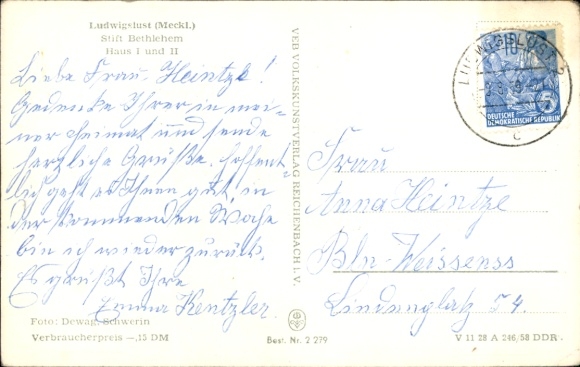 Ludwigslust (Meckl.)
Stift Bethlehem
Haus I und II
Liebe Frau Heintze!
Gedenke Ihrer in mei-
ner Heimat und sende
herzliche Grüße, hoffent
lich geht es Ihnen gut, in
der kommenden Woche
bin ich wieder zurück.
Es grüßt Ihre
Emma Kentzler.
Foto: Dewag, Schwerin
Verbraucherpreis —,15 DM
VEB VOLKSKUNSTVERLAG REICHENBACH I. V.
Best. Nr. 2 279
LUDWIGSLUST
c
10
5
DEUTSCHE
DEMOKRATISCHE REPUBLIK
Frau
Anna Heintze
Bln-Weissenss
Lindenplatz 54.
V 11 28 A 246/58 DDR